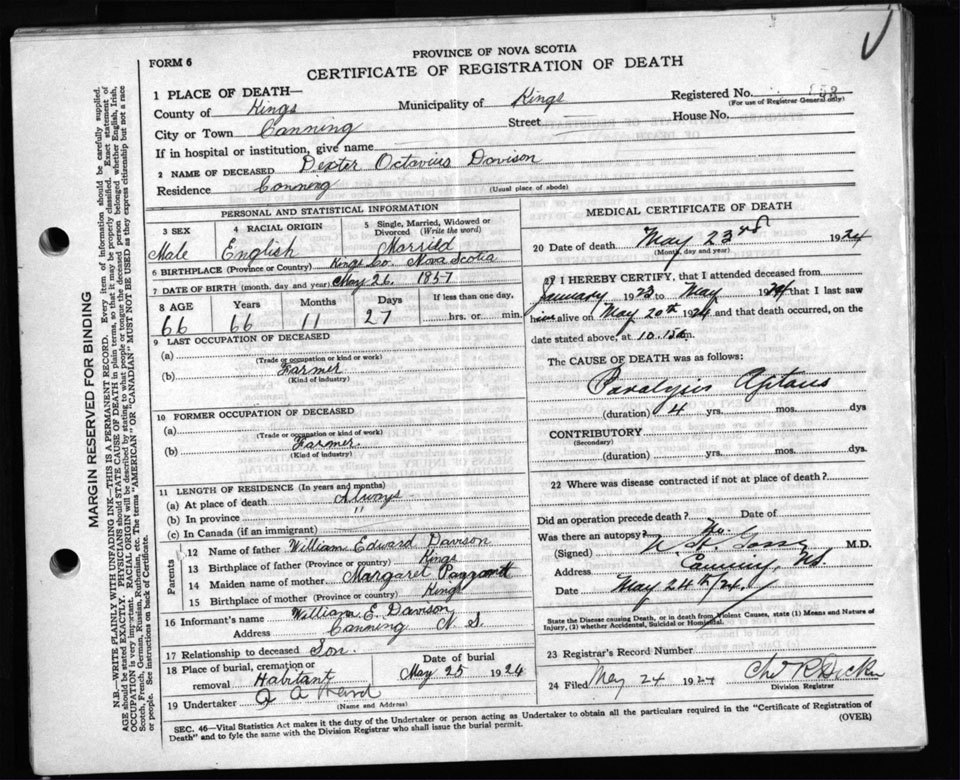 PROVINCE OF NOVA SCOTIA
FORM 6
CERTIFICATE OF REGISTRATION OF DEATH
1 PLACE OF DEATH—
Registered No. 158
(For use of Registrar General only)
County of Kings Municipality of Kings
City or Town Canning Street House No.
If in hospital or institution, give name
2 NAME OF DECEASED Dexter Octavius Davison
Residence Canning (Usual place of abode)
PERSONAL AND STATISTICAL INFORMATION
3 SEX
4 RACIAL ORIGIN
5 Single, Married, Widowed or Divorced (Write the word)
Male English Married
6 BIRTHPLACE (Province or Country) Kings Co. Nova Scotia
7 DATE OF BIRTH (month, day and year) May 26. 1857
8 AGE Years Months Days If less than one day,
66 66 11 27 hrs. or min.
9 LAST OCCUPATION OF DECEASED
(a)
(Trade or occupation or kind of work)
(b) Farmer
(Kind of industry)
10 FORMER OCCUPATION OF DECEASED
(a)
(Trade or occupation or kind of work)
(b) Farmer
(Kind of industry)
11 LENGTH OF RESIDENCE (In years and months)
(a) At place of death Always
(b) In province "
(c) In Canada (if an immigrant)
Parents
12 Name of father William Edward Davison
13 Birthplace of father (Province or Country) Kings
14 Maiden name of mother Margaret
15 Birthplace of mother (Province or Country) Kings
16 Informant's name William E. Davison
Address Canning N. S.
17 Relationship to deceased Son.
18 Place of burial, cremation or removal Habitant
Date of burial May 25 1924
19 Undertaker
(Name and Address)
MEDICAL CERTIFICATE OF DEATH
20 Date of death May 23rd 1924
(Month, day and year)
I HEREBY CERTIFY, that I attended deceased from
January 1923 to May 1924 that I last saw
him alive on May 20th 1924 and that death occurred, on the
date stated above, at 10.15 a.m.
The CAUSE OF DEATH was as follows:
Paralysis Agitans
(duration) 4 yrs. mos. dys
CONTRIBUTORY
(Secondary)
(duration) yrs. mos. dys
22 Where was disease contracted if not at place of death?
Did an operation precede death? Date of
Was there an autopsy? No.
(Signed) M.D.
Address Canning, NS.
Date May 24th/24.
State the Disease causing Death, or in death from Violent Causes, state (1) Means and Nature of
Injury, (2) whether Accidental, Suicidal or Homicidal.
23 Registrar's Record Number
24 Filed May 24 1924
Division Registrar
SEC. 46—Vital Statistics Act makes it the duty of the Undertaker or person acting as Undertaker to obtain all the particulars required in the "Certificate of Registration of
Death" and to fyle the same with the Division Registrar who shall issue the burial permit. (OVER)
MARGIN RESERVED FOR BINDING
N.B.—WRITE PLAINLY WITH UNFADING INK—THIS IS A PERMANENT RECORD. Every item of information should be carefully supplied.
AGE should be stated EXACTLY. PHYSICIANS should STATE CAUSE OF DEATH in plain terms, so that it may be properly classified. Exact statement of
OCCUPATION is very important. RACIAL ORIGIN will be described by stating to what people or tongue the deceased person belonged whether English, Irish,
Scotch, French, German, Russian, Ruthenian, etc. The terms "AMERICAN" OR "CANADIAN" MUST NOT BE USED as they express citizenship but not a race
or people. See instructions on back of Certificate.